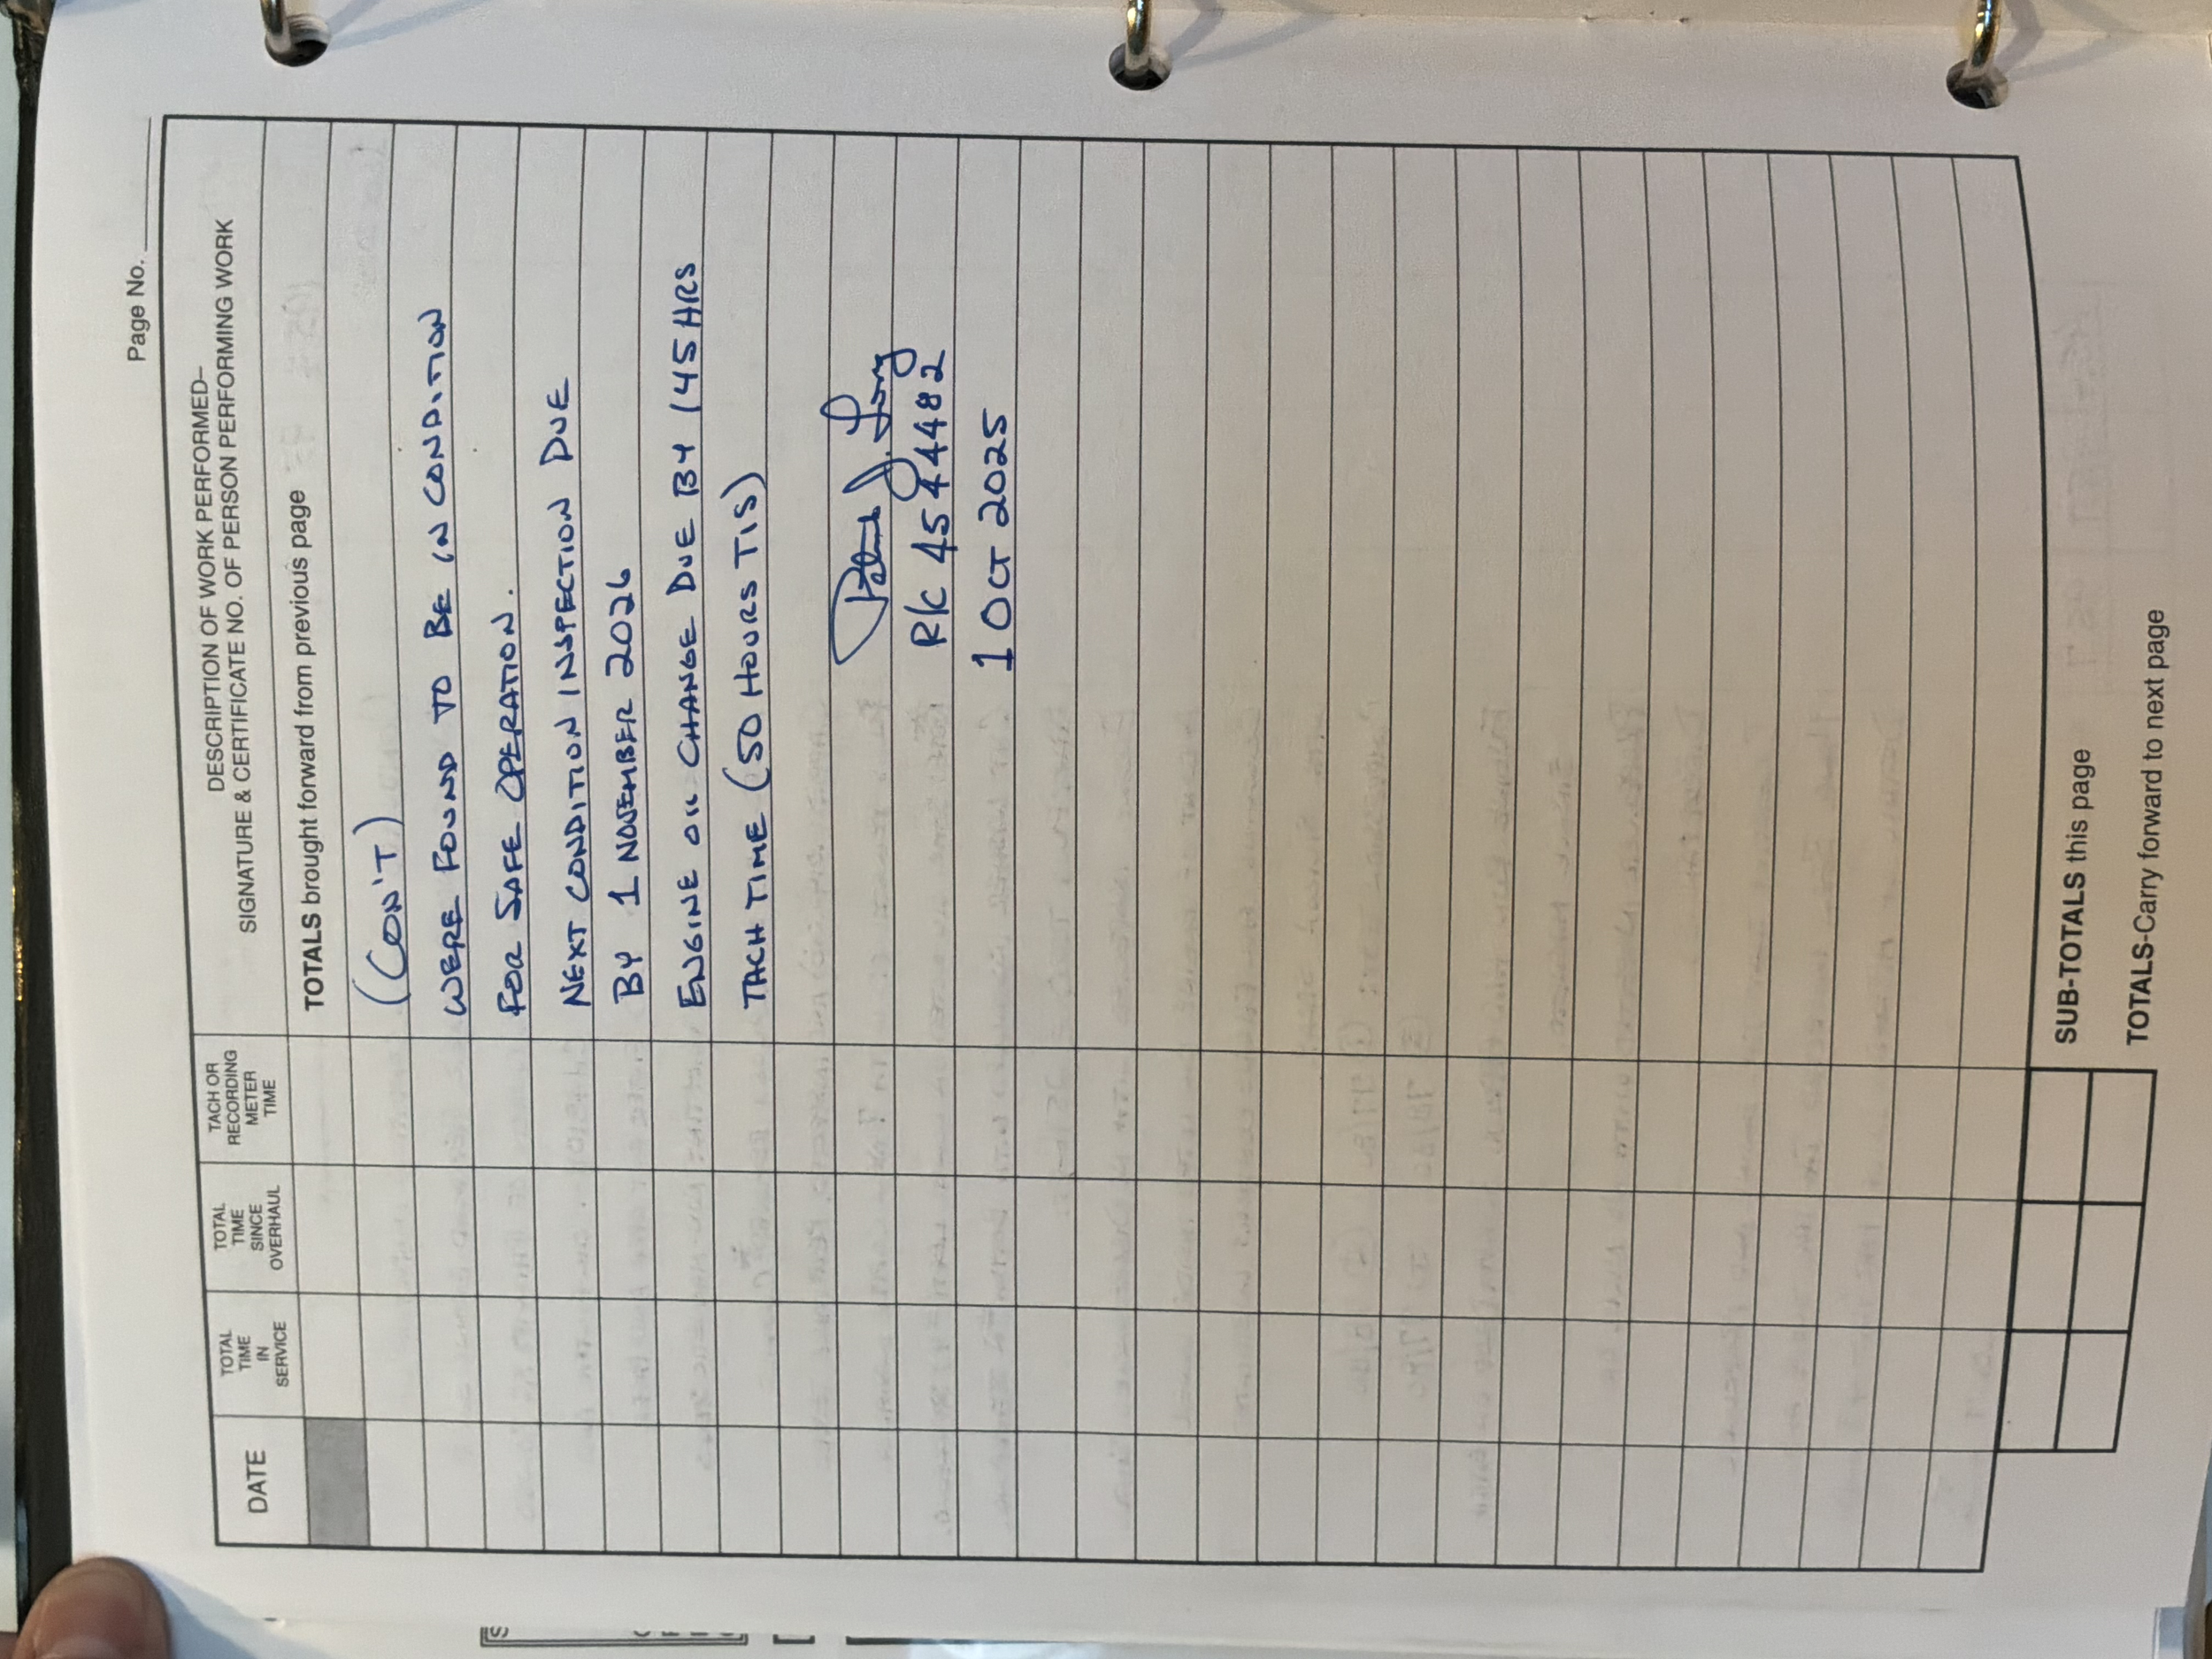 Page No.
DATE
TOTAL
TIME
IN
SERVICE
TOTAL
TIME
SINCE
OVERHAUL
TACH OR
RECORDING
METER
TIME
DESCRIPTION OF WORK PERFORMED–
SIGNATURE & CERTIFICATE NO. OF PERSON PERFORMING WORK
TOTALS brought forward from previous page
(CON'T)
WERE FOUND TO BE IN CONDITION
FOR SAFE OPERATION.
NEXT CONDITION INSPECTION DUE
BY 1 NOVEMBER 2026
ENGINE OIL CHANGE DUE BY 145 HRS
TACH TIME (50 HOURS TIS)
R/C 4544482
1 OCT 2025
SUB-TOTALS this page
TOTALS-Carry forward to next page